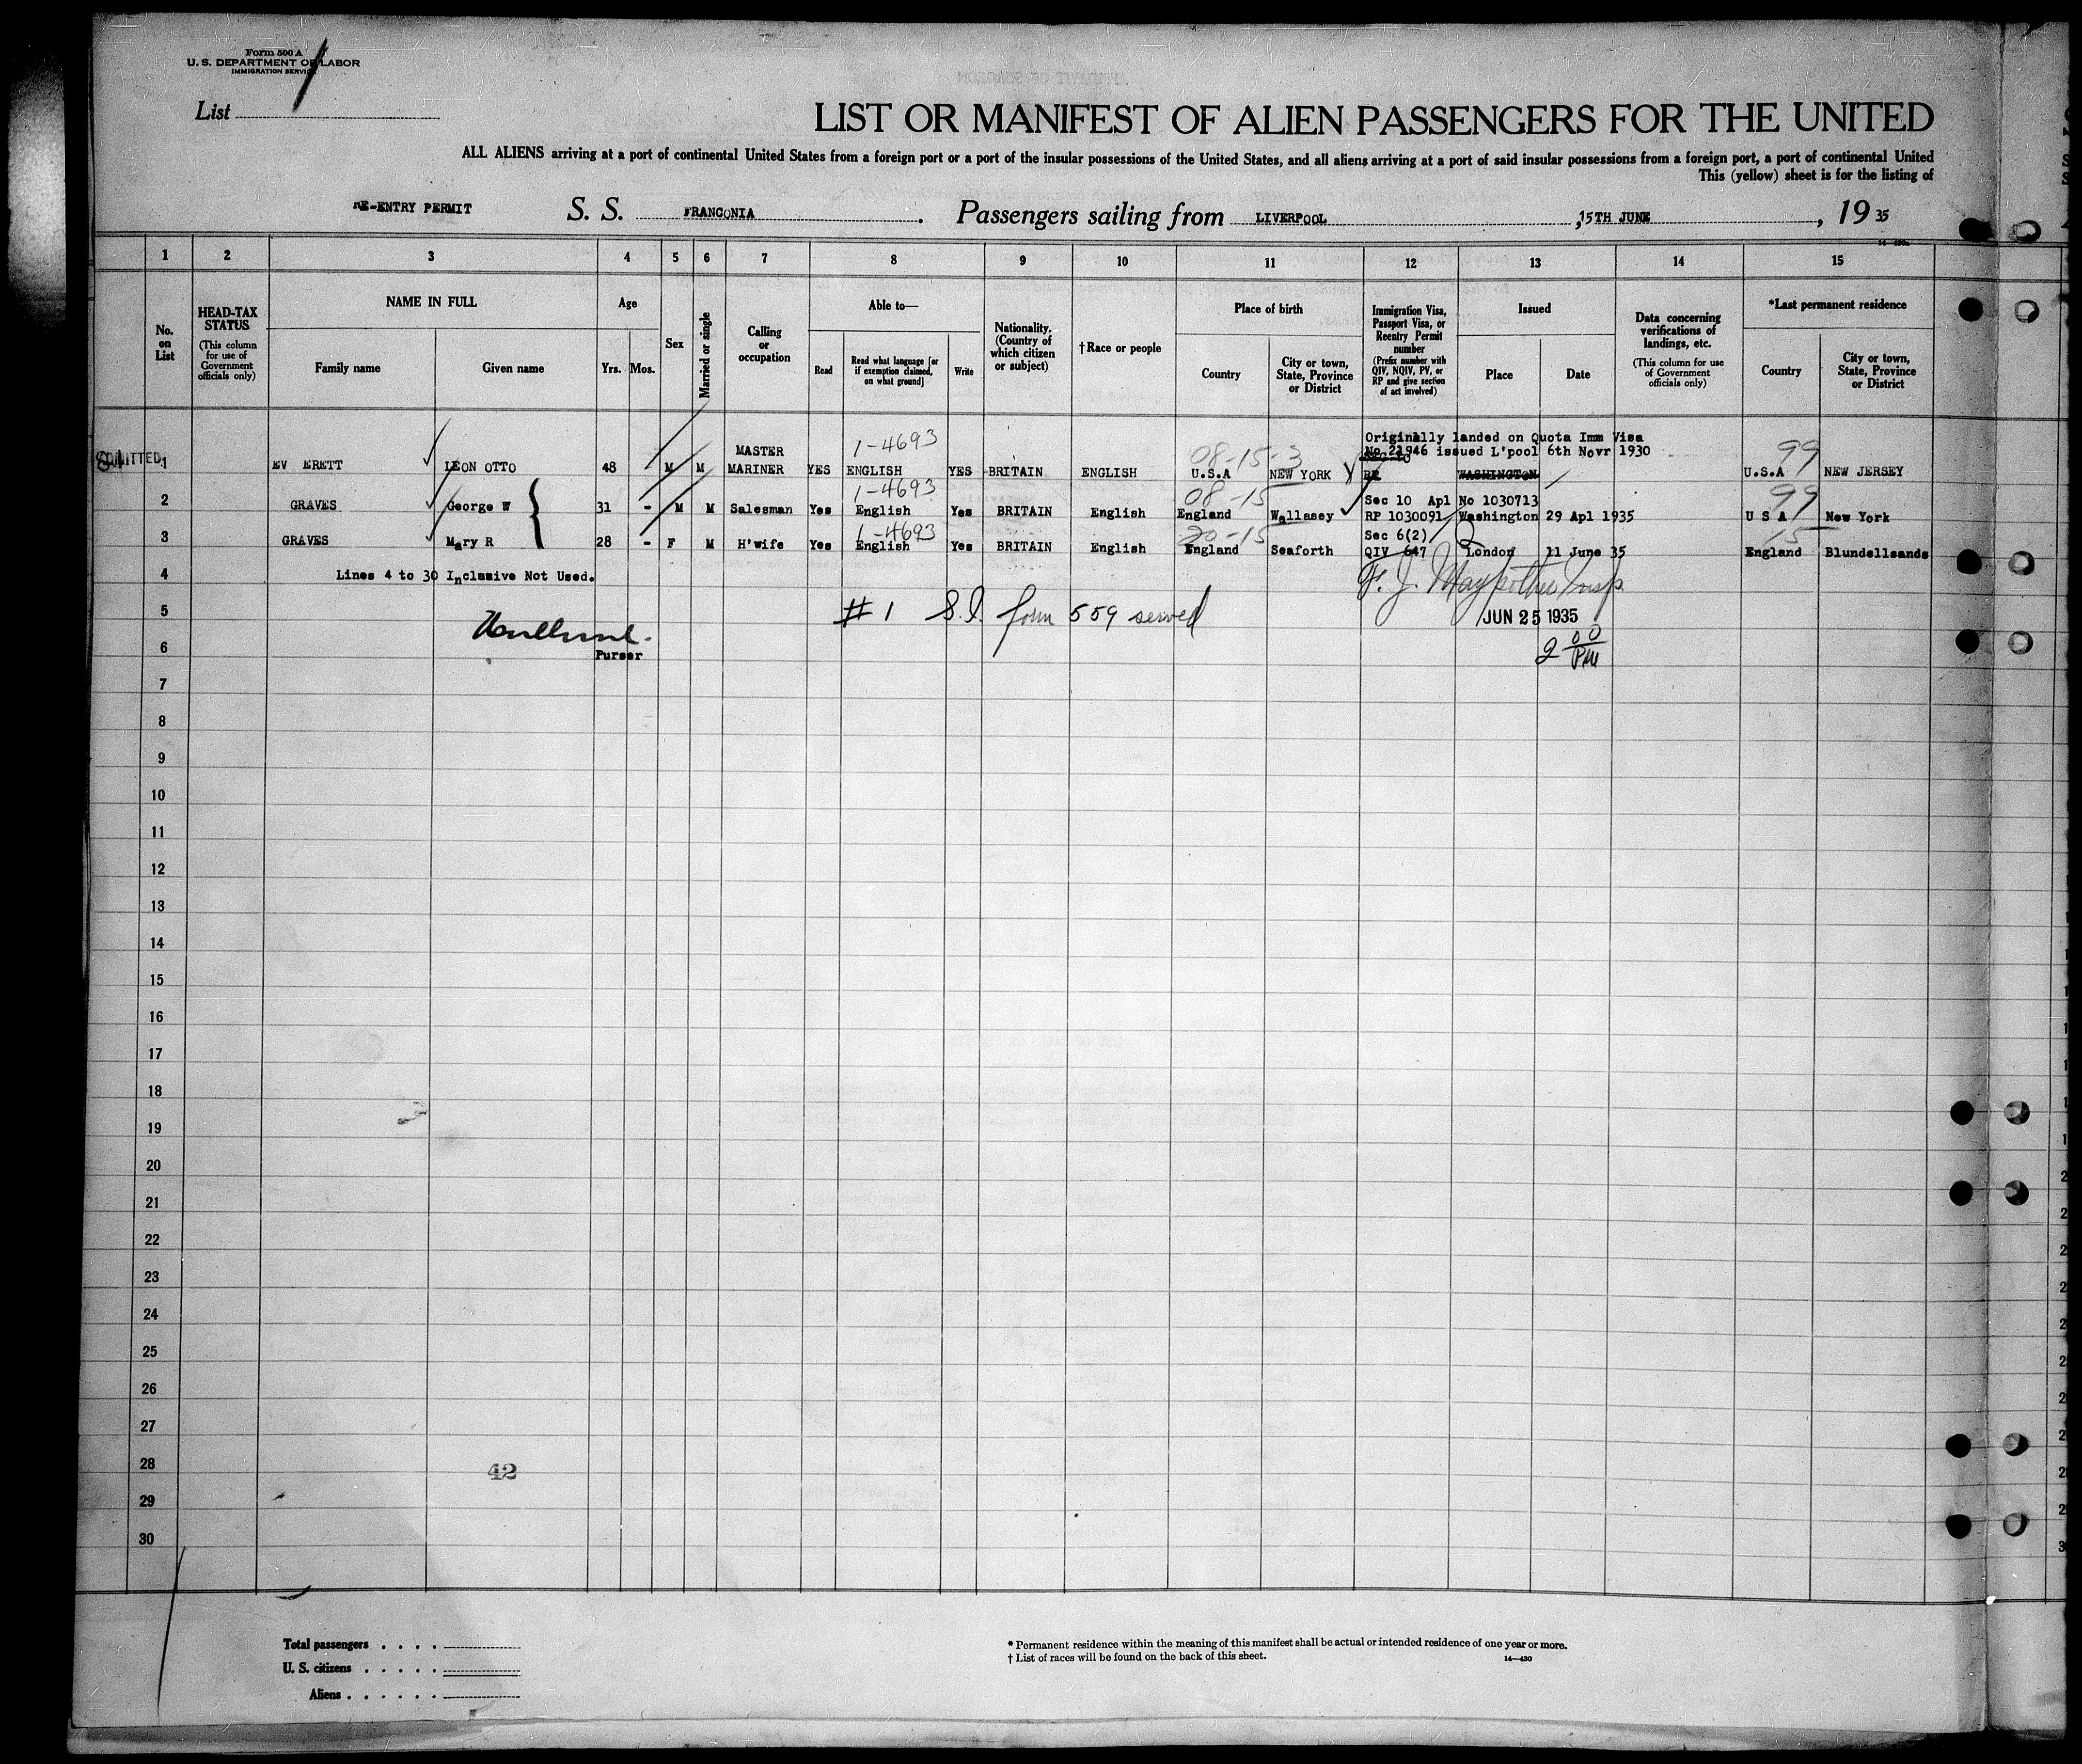 Form 500 A
U. S. DEPARTMENT OF LABOR
IMMIGRATION SERVICE
List 1
LIST OR MANIFEST OF ALIEN PASSENGERS FOR THE UNITED
ALL ALIENS arriving at a port of continental United States from a foreign port or a port of the insular possessions of the United States, and all aliens arriving at a port of said insular possessions from a foreign port, a port of continental United
This (yellow) sheet is for the listing of
RE-ENTRY PERMIT S. S. FRANCONIA. Passengers sailing from LIVERPOOL, 15TH JUNE, 19 35
1 2 3 4 5 6 7 8 9 10 11 12 13 14 15
No. on List
HEAD-TAX STATUS
(This column for use of Government officials only)
NAME IN FULL
Family name
Given name
Age
Yrs. Mos.
Sex
Married or single
Calling or occupation
Able to—
Read
Read what language [or if exemption claimed, on what ground]
Write
Nationality. (Country of which citizen or subject)
†Race or people
Place of birth
Country
City or town, State, Province or District
Immigration Visa, Passport Visa, or Reentry Permit number
(Prefix number with QIV, NQIV, PV, or RP and give section of act involved)
Issued
Place
Date
Data concerning verifications of landings, etc.
(This column for use of Government officials only)
*Last permanent residence
Country
City or town, State, Province or District
MASTER 1-4693 08-15-3 Originally landed on Quota Imm Visa 99
No 21946 issued L'pool 6th Novr 1930
ADMITTED 1 EV ERETT LEON OTTO 48 M M MARINER YES ENGLISH YES BRITAIN ENGLISH U.S.A NEW YORK RP WASHINGTON U.S.A NEW JERSEY
1-4693 08-15 Sec 10 Apl No 1030713 99
2 GRAVES George W 31 - M M Salesman Yes English Yes BRITAIN English England Wallasey RP 1030091 Washington 29 Apl 1935 U S A New York
1-4693 20-15 Sec 6(2) 15
3 GRAVES Mary R 28 - F M H'wife Yes English Yes BRITAIN English England Seaforth QIV 647 London 11 June 35 England Blundellsands
4 Lines 4 to 30 Inclusive Not Used.
5 #1 S.I. form 559 served JUN 25 1935
6 Purser 2 00 PM
7
8
9
10
11
12
13
14
15
16
17
18
19
20
21
22
23
24
25
26
27
28 42
29
30
Total passengers . . . .
U. S. citizens . . . . .
Aliens . . . . . .
* Permanent residence within the meaning of this manifest shall be actual or intended residence of one year or more.
† List of races will be found on the back of this sheet.
14—430